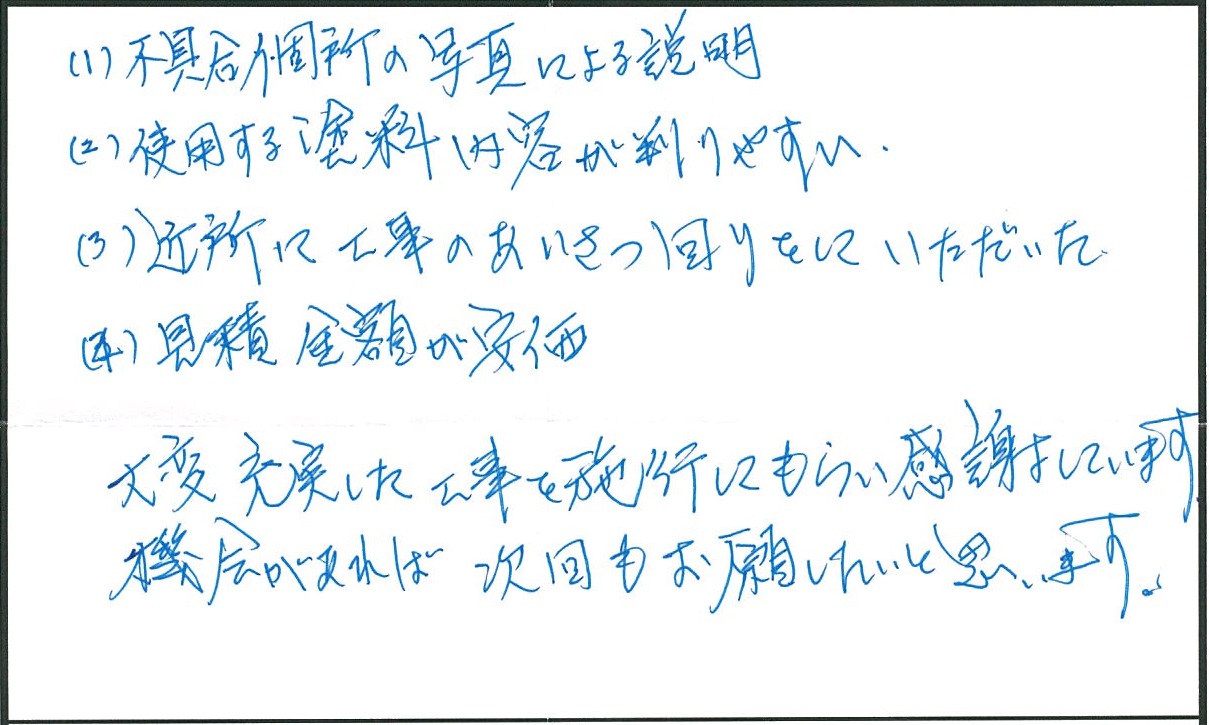 (1)不具合個所の写真による説明
(2)使用する塗料内容が判りやすい.
(3)近所に工事のあいさつ回りをしていただいた.
(4)見積金額が安価
大変充実した工事を施行してもらい感謝しています
機会があれば次回もお願いしたいと思います。